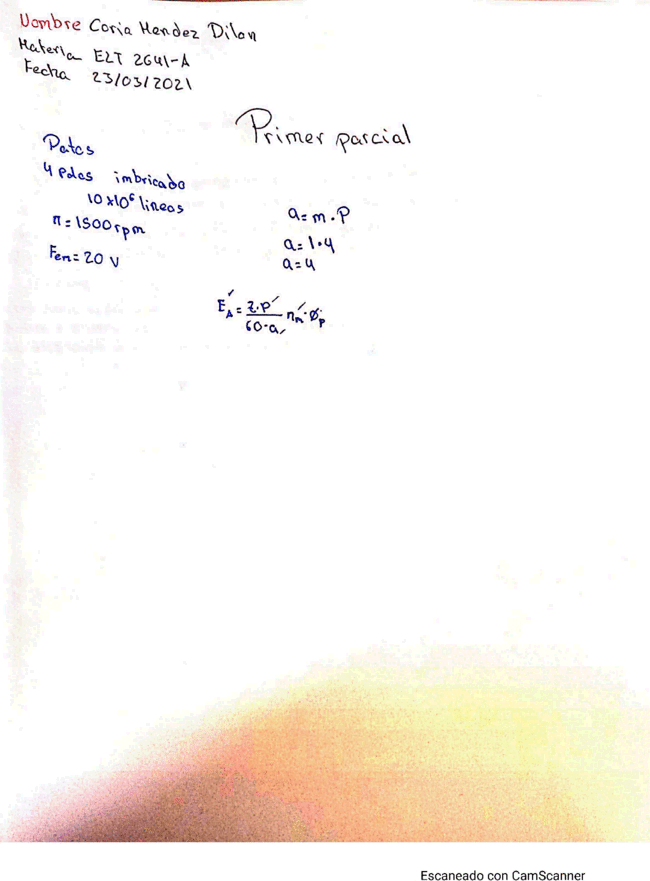 Nombre Coria Mendez Dilan
Materia ELT 2641-A
Fecha 23/03/2021
Primer parcial
Datos
4 Polos imbricado
10x10⁶ lineas
n=1500rpm
Fem=20 V
a=m.P
a=1.4
a=4
E_A=z.P/60.a n_m.Ø_p
Escaneado con CamScanner